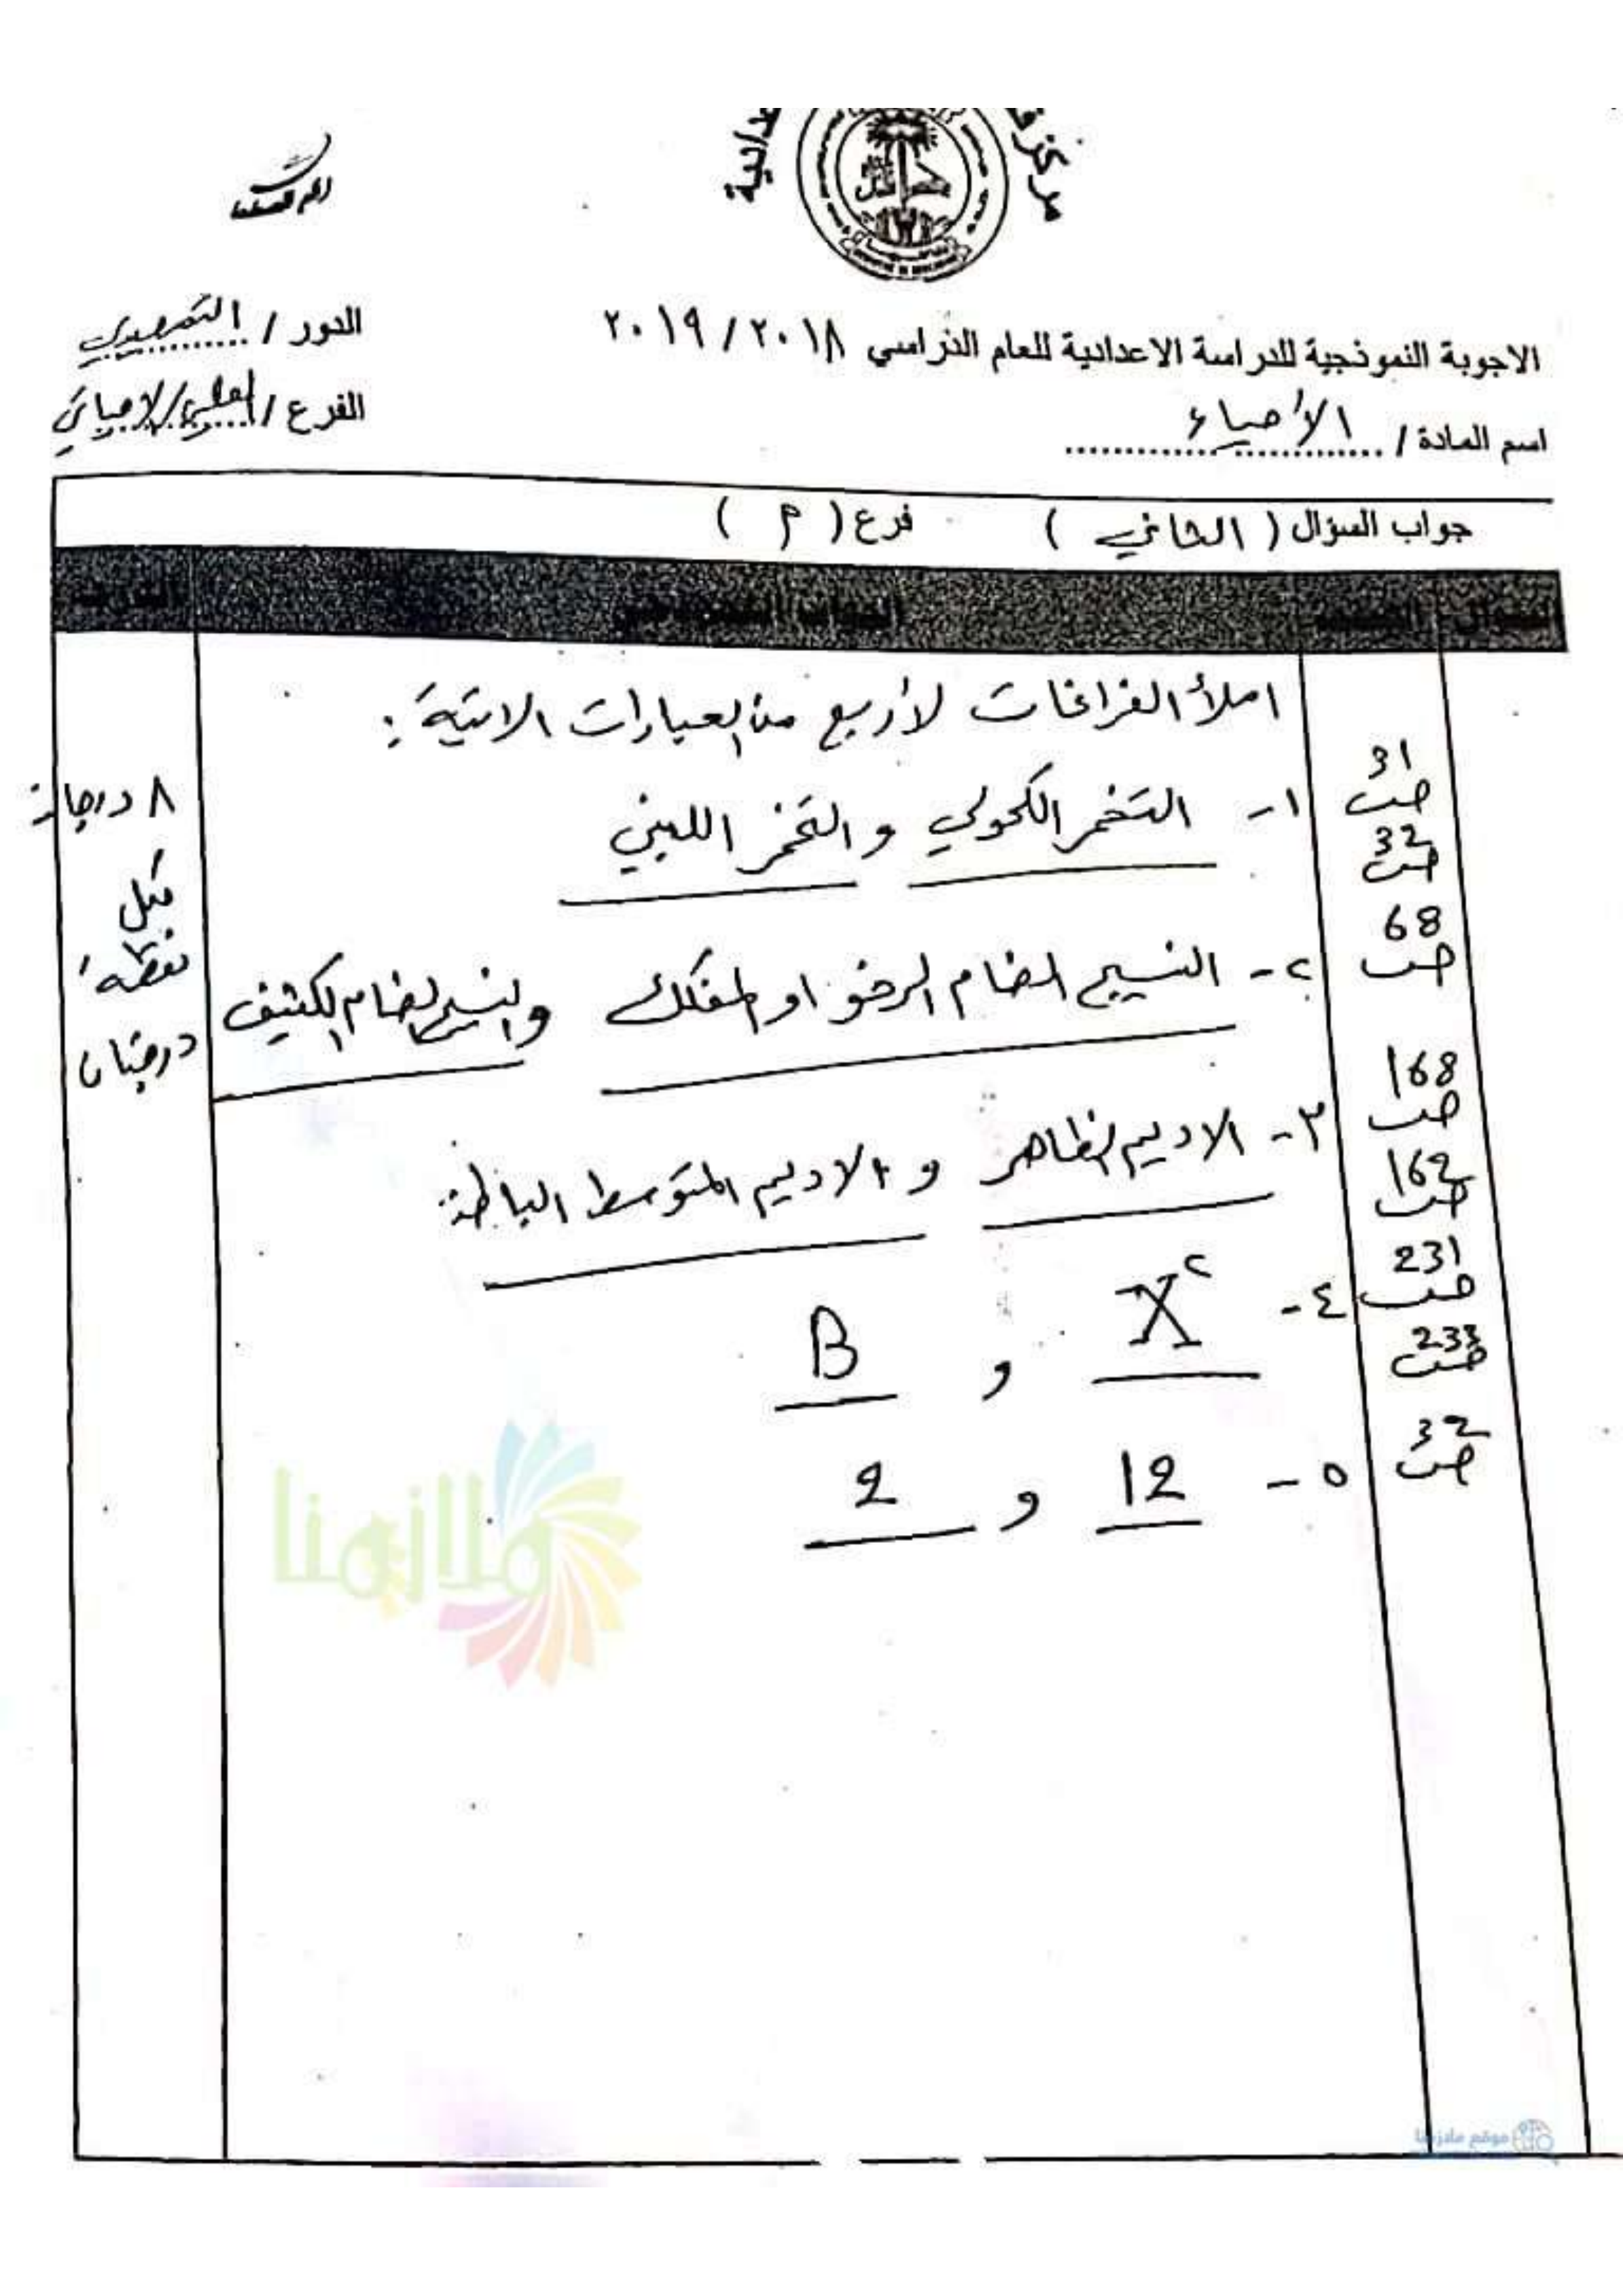 الاجوبة النموذجية للدراسة الاعدادية للعام الدراسي ٢٠١٨ / ٢٠١٩
الدور / التمهيدي
اسم المادة / الأحياء
الفرع / العلمي/الاحيائي
جواب السؤال ( الثاني ) فرع ( م )
املأ الفراغات لأربع من العبارات الاتية :
٨ درجات
لكل
نقطة
درجتان
31 ص
32 ص
١- التخمر الكحولي و التخمر اللبني
68 ص
٢- النسيج الضام الرخو او المفكك والنسيج الضام الكثيف
168 ص
162 ص
٣- الاديم الظاهر و الاديم المتوسط الباطن
231 ص
233 ص
٤- Xᶜ و B
32 ص
٥- 12 و 2
ملازمنا
موقع ملازمنا